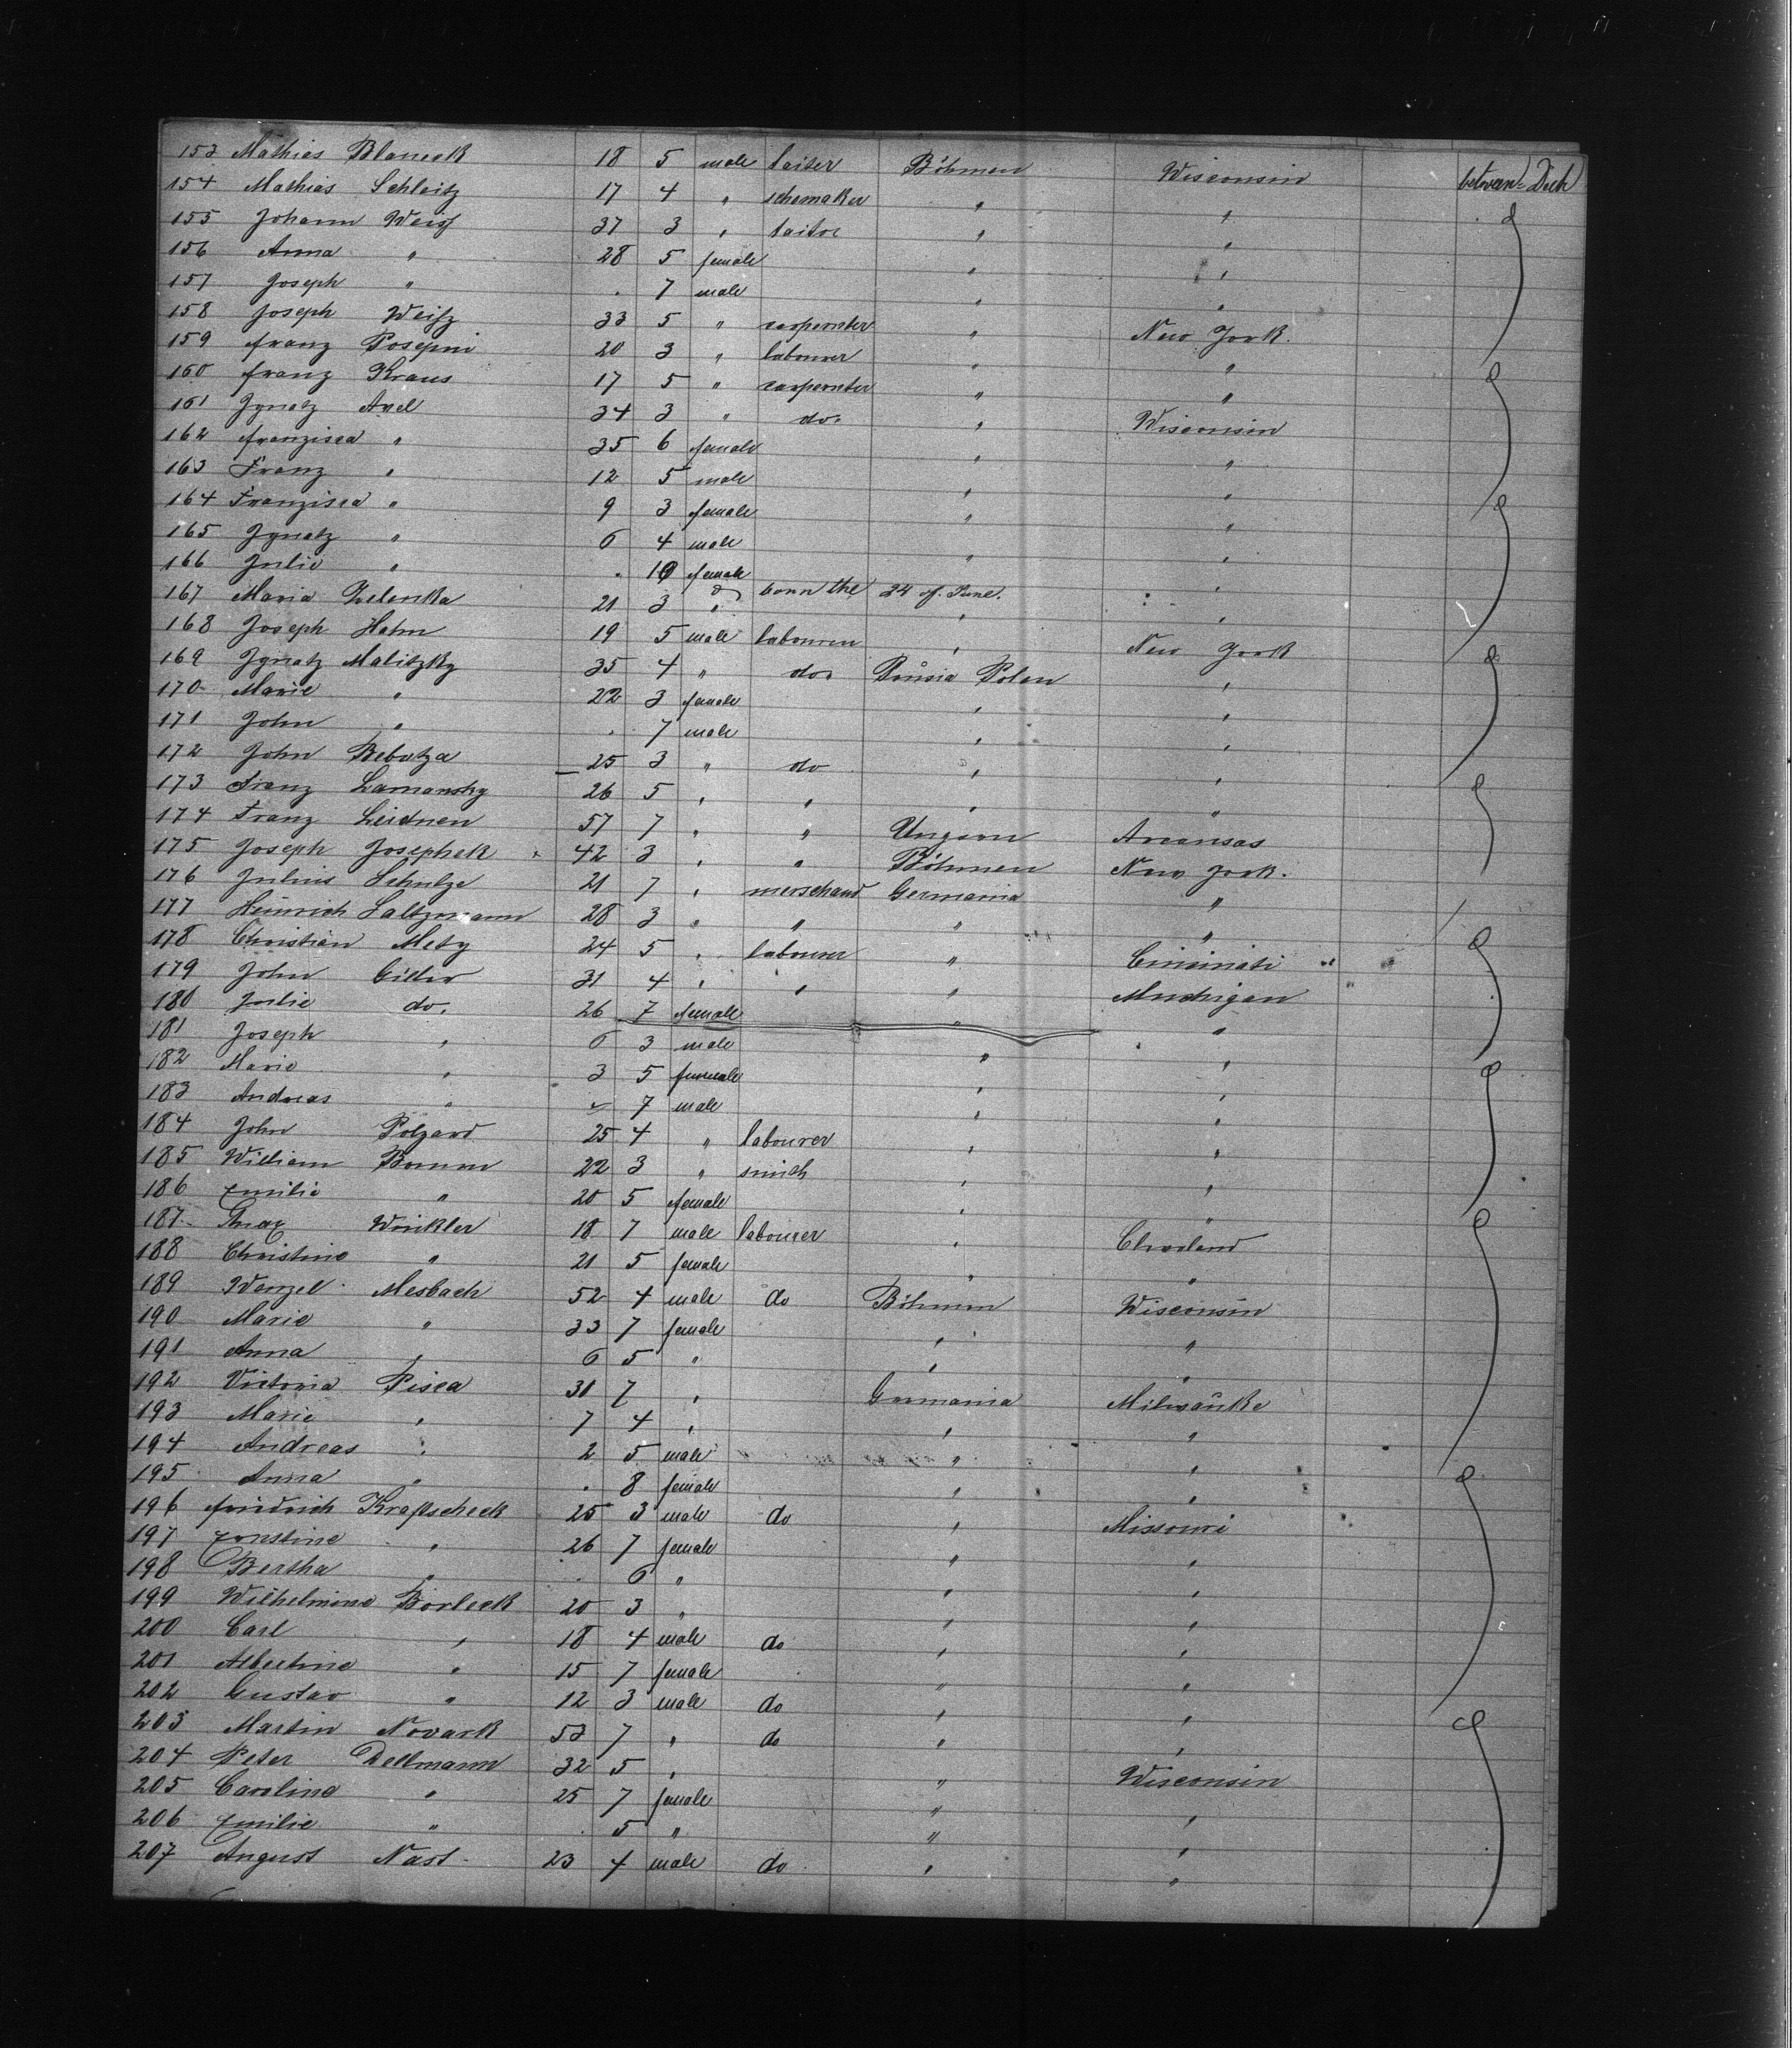 153 Mathias Blaneck 18 5 male taiter Böhmen Wisconsin betwen-Deck
154 Mathias Schleitz 17 4 " schomaker " "
155 Johann Weiss 37 3 " taitor " "
156 Anna " 28 5 female " "
157 Joseph " . 7 male " "
158 Joseph Weisz 33 5 " carpernter " New York.
159 franz Posepni 20 3 " labourer " "
160 franz Kraus 17 5 " carpernter " "
161 Ignatz Axel 34 3 " do. " Wisconsin
162 franzisca " 35 6 female " "
163 Franz " 12 5 male " "
164 Franzisca " 9 3 female " "
165 Ignatz " 6 4 male " "
166 Julie " . 10 female " "
167 Maria Zelenka 21 3 " born the 24 of June. " "
168 Joseph Hahn 19 5 male labourer " New York
169 Ignatz Malitzky 35 4 " do. Prüsia Polen "
170 Marie " 22 3 female " "
171 John " . 7 male " "
172 John Bebotza 25 3 " do " "
173 Franz Lamansky 26 5 " " " "
174 Franz Leidner 57 7 " " Ungarn Arcansas
175 Joseph Josephek 42 3 " " Böhmen New York.
176 Julius Schulze 21 7 " merschand Germania "
177 Heinrich Saltzmann 28 3 " " " "
178 Christian Metz 24 5 " labourer " Cincinati
179 John Gidlw 31 4 " " " Muchigan
180 Julie do. 26 7 female " "
181 Joseph " 6 3 male " "
182 Marie " 3 5 female " "
183 Andreas " 7 male " "
184 John Polzard 25 4 " labourer " "
185 William Bomm 22 3 " smith " "
186 Emilie " 20 5 female " "
187 Winkler 18 7 male labourer " Cleveland
188 Christine " 21 5 female " "
189 Wenzel Mesbach 52 4 male do Böhmen Wisconsin
190 Marie " 33 7 female " "
191 Anna " 6 5 " " "
192 Victoria Pisca 31 7 " Germania Milwauke
193 Marie " 7 4 " " "
194 Andreas " 2 5 male " "
195 Anna " . 8 female " "
196 friedrich Krafscheck 25 3 male do " Missouri
197 Ernstine " 26 7 female " "
198 Bertha " . 6 " " "
199 Wilhelmine Borleck 20 3 " " "
200 Carl " 18 4 male do " "
201 Albertine " 15 7 female " "
202 Gustav " 12 3 male do " "
203 Martin Novark 53 7 " do " "
204 Peter Dellmann 32 5 " " Wisconsin
205 Caroline " 25 7 female " "
206 Emilie " . 5 " " "
207 August Nast 23 4 male do " "